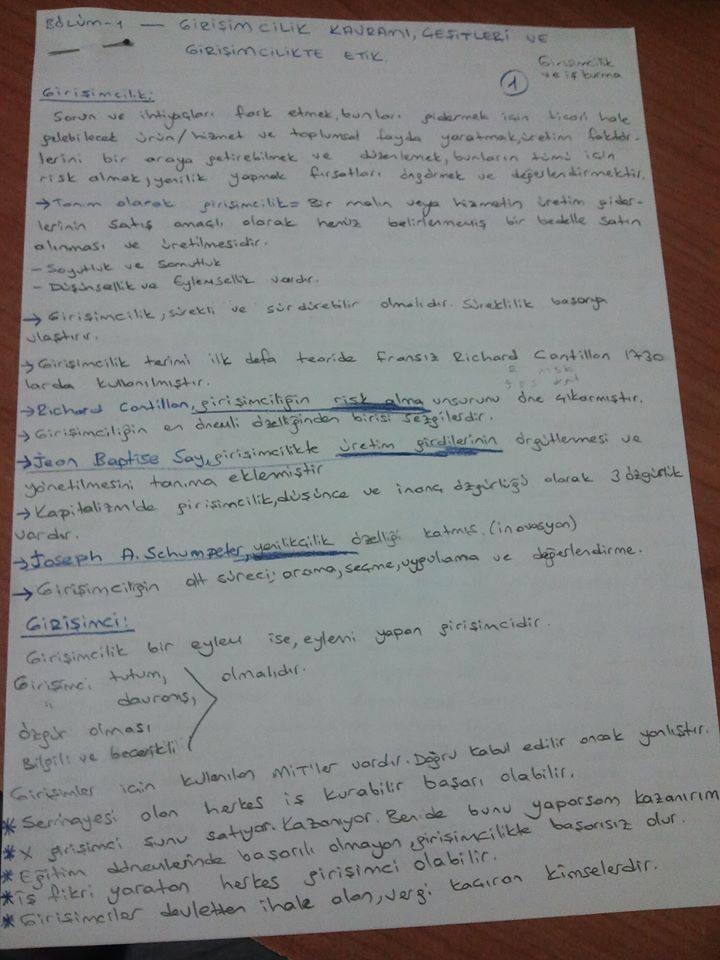 BÖLÜM-1 — GİRİŞİMCİLİK KAVRAMI, ÇEŞİTLERİ VE
GİRİŞİMCİLİKTE ETİK.
Girişimcilik
ve iş kurma
1
Girişimcilik:
Sorun ve ihtiyaçları fark etmek, bunları gidermek için ticari hale
gelebilecek ürün/hizmet ve toplumsal fayda yaratmak, üretim faktör-
lerini bir araya getirebilmek ve düzenlemek, bunların tümü için
risk almak, yenilik yapmak fırsatları öngörmek ve değerlendirmektir.
→ Tanım olarak girişimcilik = Bir malın veya hizmetin üretim gider-
lerinin satış amaçlı olarak henüz belirlenmemiş bir bedelle satın
alınması ve üretilmesidir.
- Soyutluk ve Somutluk
- Düşünsellik ve Eylemsellik vardır.
→ Girişimcilik, sürekli ve sürdürebilir olmalıdır. Süreklilik başarıya
ulaştırır.
→ Girişimcilik terimi ilk defa teoride Fransız Richard Cantillon 1730
larda kullanılmıştır.
→ Richard Cantillon, girişimciliğin risk alma unsurunu öne çıkarmıştır.
→ Girişimciliğin en önemli özelliğinden birisi sezgilerdir.
→ Jean Baptise Say, girişimcilikte üretim girdilerinin örgütlenmesi ve
yönetilmesini tanıma eklemiştir
→ Kapitalizm'de girişimcilik, düşünce ve inanç özgürlüğü olarak 3 özgürlük
vardır.
→ Joseph A. Schumpeter, yenilikçilik özelliği katmış. (inovasyon)
→ Girişimciliğin alt süreci; arama, seçme, uygulama ve değerlendirme.
GİRİŞİMCİ:
Girişimcilik bir eylem ise, eylemi yapan girişimcidir.
Girişimci tutum, olmalıdır.
" davranış,
özgür olması
Bilgili ve becerikli
Girişimler için kullanılan MİT'ler vardır. Doğru kabul edilir ancak yanlıştır.
* Sermayesi olan herkes iş kurabilir başarı olabilir.
* X girişimci şunu satıyor. Kazanıyor. Bende bunu yaparsam kazanırım
* Eğitim dönemlerinde başarılı olmayan, girişimcilikte başarısız olur.
* İş fikri yaratan herkes girişimci olabilir.
* Girişimciler devletten ihale alan, vergi kaçıran kimselerdir.